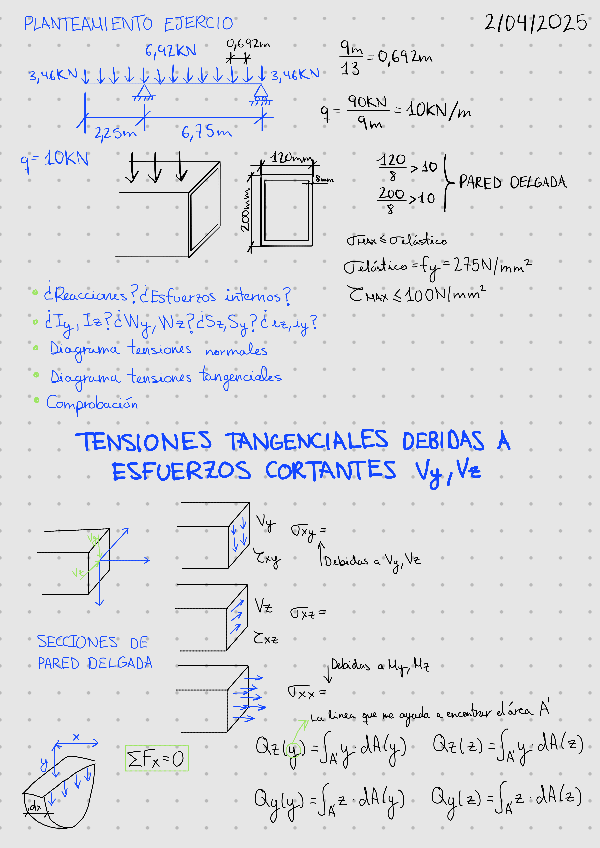 PLANTEAMIENTO EJERCIO
2/04/2025
6,92KN
0,692m
3,46KN
3,46KN
9m/13 = 0,692m
q = 90KN/9m = 10KN/m
2,25m
6,75m
q = 10KN
120mm
8mm
200mm
120/8 > 10
200/8 > 10
PARED DELGADA
σMAX ≤ σelástico
σelástico = fy = 275N/mm²
τMAX ≤ 100N/mm²
• ¿Reacciones? ¿Esfuerzos internos?
• ¿Iy, Iz? ¿Wy, Wz? ¿Sz, Sy? ¿iz, iy?
• Diagrama tensiones normales
• Diagrama tensiones tangenciales
• Comprobación
TENSIONES TANGENCIALES DEBIDAS A
ESFUERZOS CORTANTES Vy, Vz
Vy
Vz
Vy
τxy
σxy =
Debidas a Vy, Vz
Vz
τxz
σxz =
SECCIONES DE
PARED DELGADA
Debidas a My, Mz
σxx =
La línea que me ayuda a encontrar el área A'
x
y
dx
ΣFx = 0
Qz(y) = ∫A' y · dA(y)
Qz(z) = ∫A' y · dA(z)
Qy(y) = ∫A' z · dA(y)
Qy(z) = ∫A' z · dA(z)